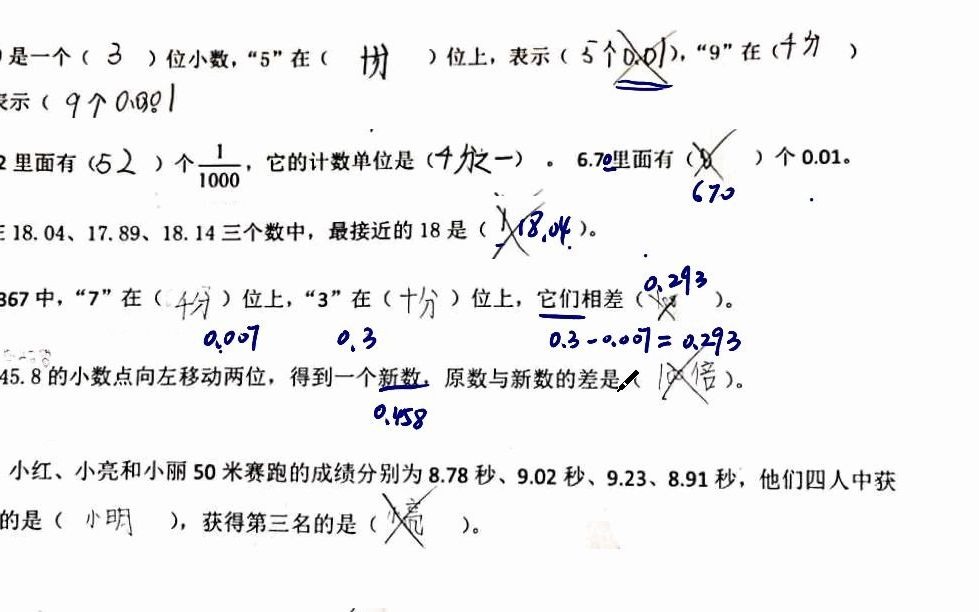 是一个（ 3 ）位小数，“5”在（ 十分 ）位上，表示（ 5个0.01），“9”在（千分 ）
表示（ 9个0.001
2里面有（52 ）个1/1000，它的计数单位是（千分之一）。 6.70里面有（ ）个0.01。
670
在18.04、17.89、18.14三个数中，最接近的18是（ 18.04 ）。
0.293
367中，“7”在（ 千分 ）位上，“3”在（ 十分 ）位上，它们相差（ ）。
0.007 0.3 0.3-0.007=0.293
45.8的小数点向左移动两位，得到一个新数，原数与新数的差是（ 100倍 ）。
0.458
小红、小亮和小丽50米赛跑的成绩分别为8.78秒、9.02秒、9.23、8.91秒，他们四人中获
的是（ 小明 ），获得第三名的是（ 小亮 ）。